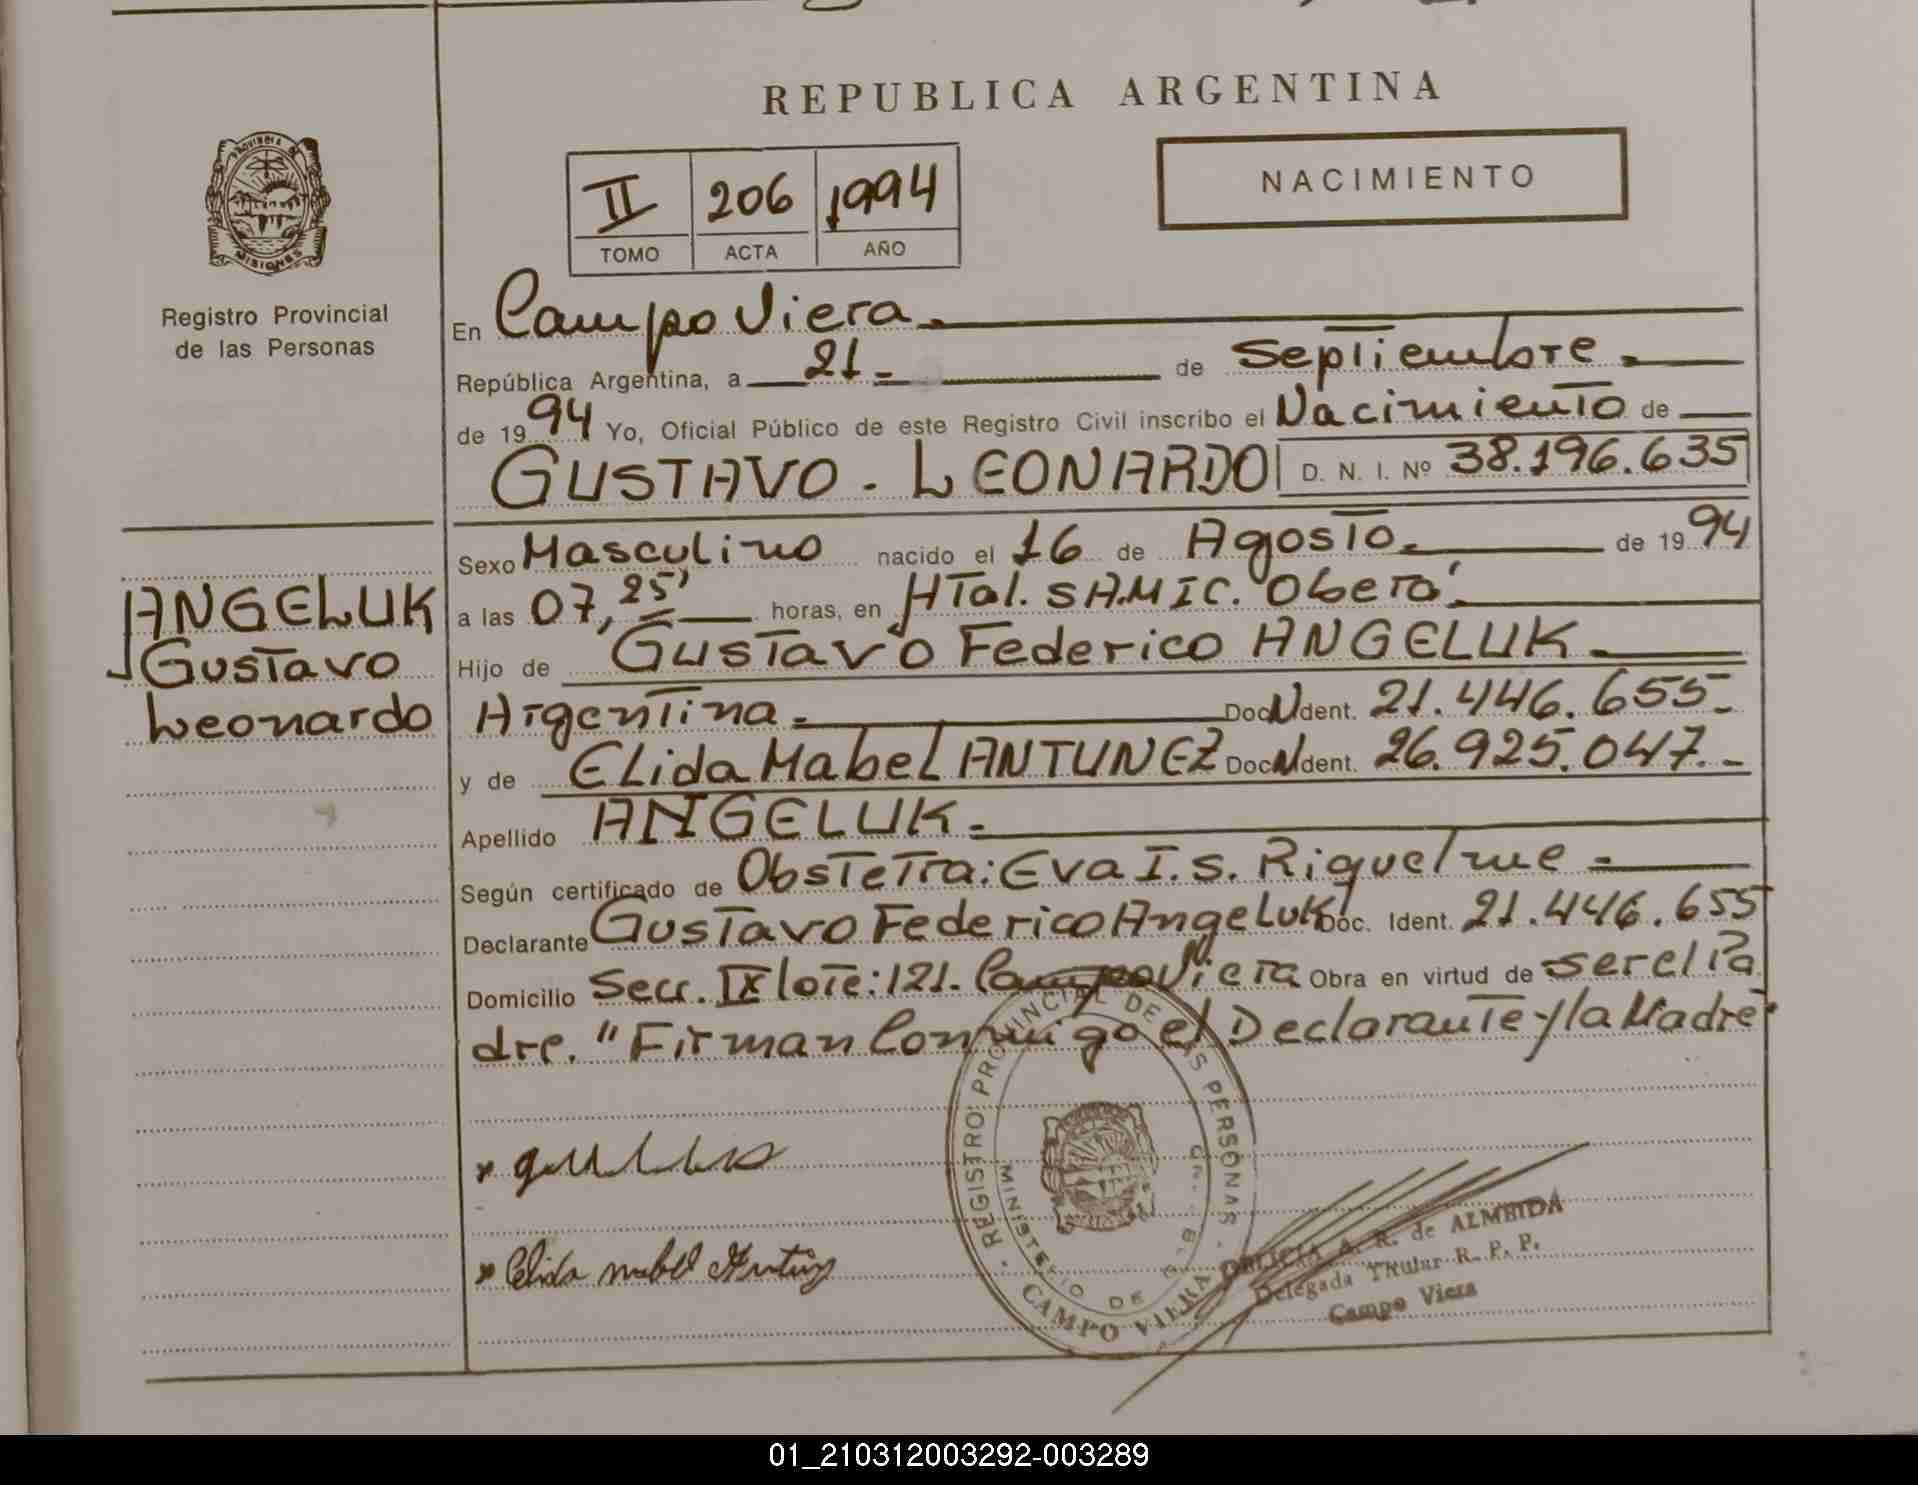 REPUBLICA ARGENTINA
NACIMIENTO
II 206 1994
TOMO ACTA AÑO
PROVINCIA DE
MISIONES
Registro Provincial
de las Personas
En Campo Viera.
República Argentina, a 21 de Septiembre.
de 1994 Yo, Oficial Público de este Registro Civil inscribo el Nacimiento de
GUSTAVO - LEONARDO D. N. I. Nº 38.196.635
Sexo Masculino nacido el 16 de Agosto. de 1994
a las 07,25' horas, en HTal. SAMIC. Oberá.
Hijo de Gustavo Federico ANGELUK.
Argentina. Doc N Ident. 21.446.655.-
y de Elida Mabel ANTUNEZ Doc N Ident. 26.925.047.-
Apellido ANGELUK.-
Según certificado de Obstetra: Eva I. S. Riquelme -
Declarante Gustavo Federico Angeluk Doc. Ident. 21.446.655
Domicilio Secc. IX lote: 121. Campo Viera Obra en virtud de ser el Pa
dre. "Firman Conmigo el Declarante y la Madre"
ANGELUK
Gustavo
Leonardo
Elida Mabel
REGISTRO PROVINCIAL DE LAS PERSONAS
MINISTERIO DE
CAMPO VIERA
A. R. de ALMEIDA
Delegada Titular R. P. P.
Campo Viera
01_210312003292-003289